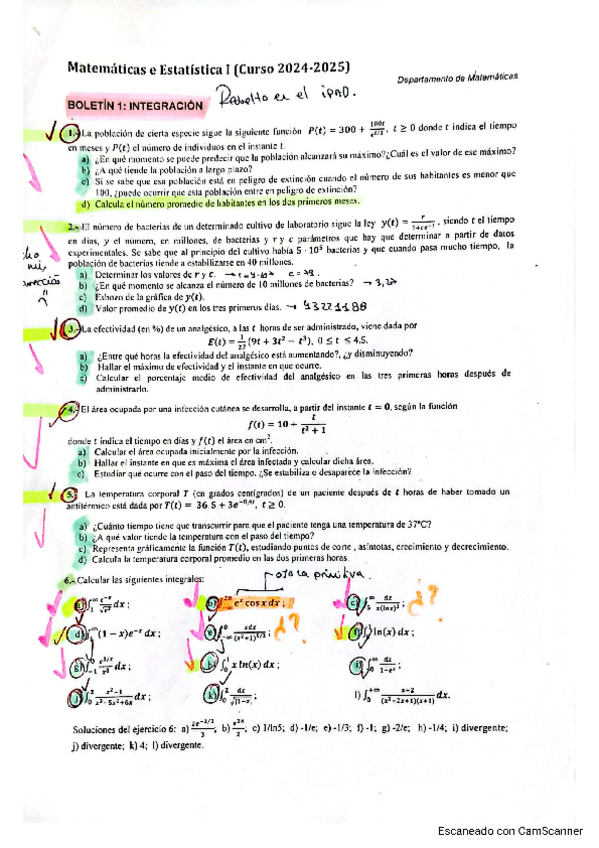 Matemáticas e Estatística I (Curso 2024-2025)
Departamento de Matemáticas
BOLETÍN 1: INTEGRACIÓN
Resuelto en el iPAD.
1.- La población de cierta especie sigue la siguiente función P(t) = 300 + 100t/e^{t/2}, t ≥ 0 donde t indica el tiempo
en meses y P(t) el número de individuos en el instante t.
a) ¿En qué momento se puede predecir que la población alcanzará su máximo?¿Cuál es el valor de ese máximo?
b) ¿A qué tiende la población a largo plazo?
c) Si se sabe que esa población está en peligro de extinción cuando el número de sus habitantes es menor que
100, ¿puede ocurrir que esta población entre en peligro de extinción?
d) Calcula el número promedio de habitantes en los dos primeros meses.
2.- El número de bacterias de un determinado cultivo de laboratorio sigue la ley y(t) = r/(1+ce^{-t}), siendo t el tiempo
en días, y el número, en millones, de bacterias y r y c parámetros que hay que determinar a partir de datos
experimentales. Se sabe que al principio del cultivo había 5 · 10⁵ bacterias y que cuando pasa mucho tiempo, la
población de bacterias tiende a estabilizarse en 40 millones.
a) Determinar los valores de r y c.
b) ¿En qué momento se alcanza el número de 10 millones de bacterias? → 3,27
c) Esbozo de la gráfica de y(t).
d) Valor promedio de y(t) en los tres primeros días.
3.- La efectividad (en %) de un analgésico, a las t horas de ser administrado, viene dada por
E(t) = 1/27 (9t + 3t² − t³), 0 ≤ t ≤ 4.5.
a) ¿Entre qué horas la efectividad del analgésico está aumentando?, ¿y disminuyendo?
b) Hallar el máximo de efectividad y el instante en que ocurre.
c) Calcular el porcentaje medio de efectividad del analgésico en las tres primeras horas después de
administrarlo.
4.- El área ocupada por una infección cutánea se desarrolla, a partir del instante t = 0, según la función
f(t) = 10 + t/(t² + 1)
donde t indica el tiempo en días y f(t) el área en cm².
a) Calcular el área ocupada inicialmente por la infección.
b) Hallar el instante en que es máxima el área infectada y calcular dicha área.
c) Estudiar qué ocurre con el paso del tiempo. ¿Se estabiliza o desaparece la infección?
5. La temperatura corporal T (en grados centígrados) de un paciente después de t horas de haber tomado un
antitérmico está dada por T(t) = 36.5 + 3e^{-0,4t}, t ≥ 0.
a) ¿Cuánto tiempo tiene que transcurrir para que el paciente tenga una temperatura de 37ºC?
b) ¿A qué valor tiende la temperatura con el paso del tiempo?
c) Representa gráficamente la función T(t), estudiando puntos de corte , asíntotas, crecimiento y decrecimiento.
d) Calcula la temperatura corporal promedio en las dos primeras horas.
6.- Calcular las siguientes integrales:
b) e^x cos x dx ; c) dx/(x(lnx)²) ; ¿?
d) (1 − x)e^{-x} dx ; e) xdx/(x²+1)^{5/2} ; ¿? ln(x) dx ;
g) e^{1/x}/x³ dx ; h) ∫₀¹ x ln(x) dx ;
j) ∫₀² (x²−1)/(x³−5x²+6x) dx ; k) ∫₀² dx/√|1−x| ; l) ∫₀^{+∞} (x+2)/((x²−2x+1)(x+1)) dx.
Soluciones del ejercicio 6: c) 1/ln5; d) -1/e; e) -1/3; f) -1; g) -2/e; h) -1/4; i) divergente;
j) divergente; k) 4; l) divergente.
Escaneado con CamScanner